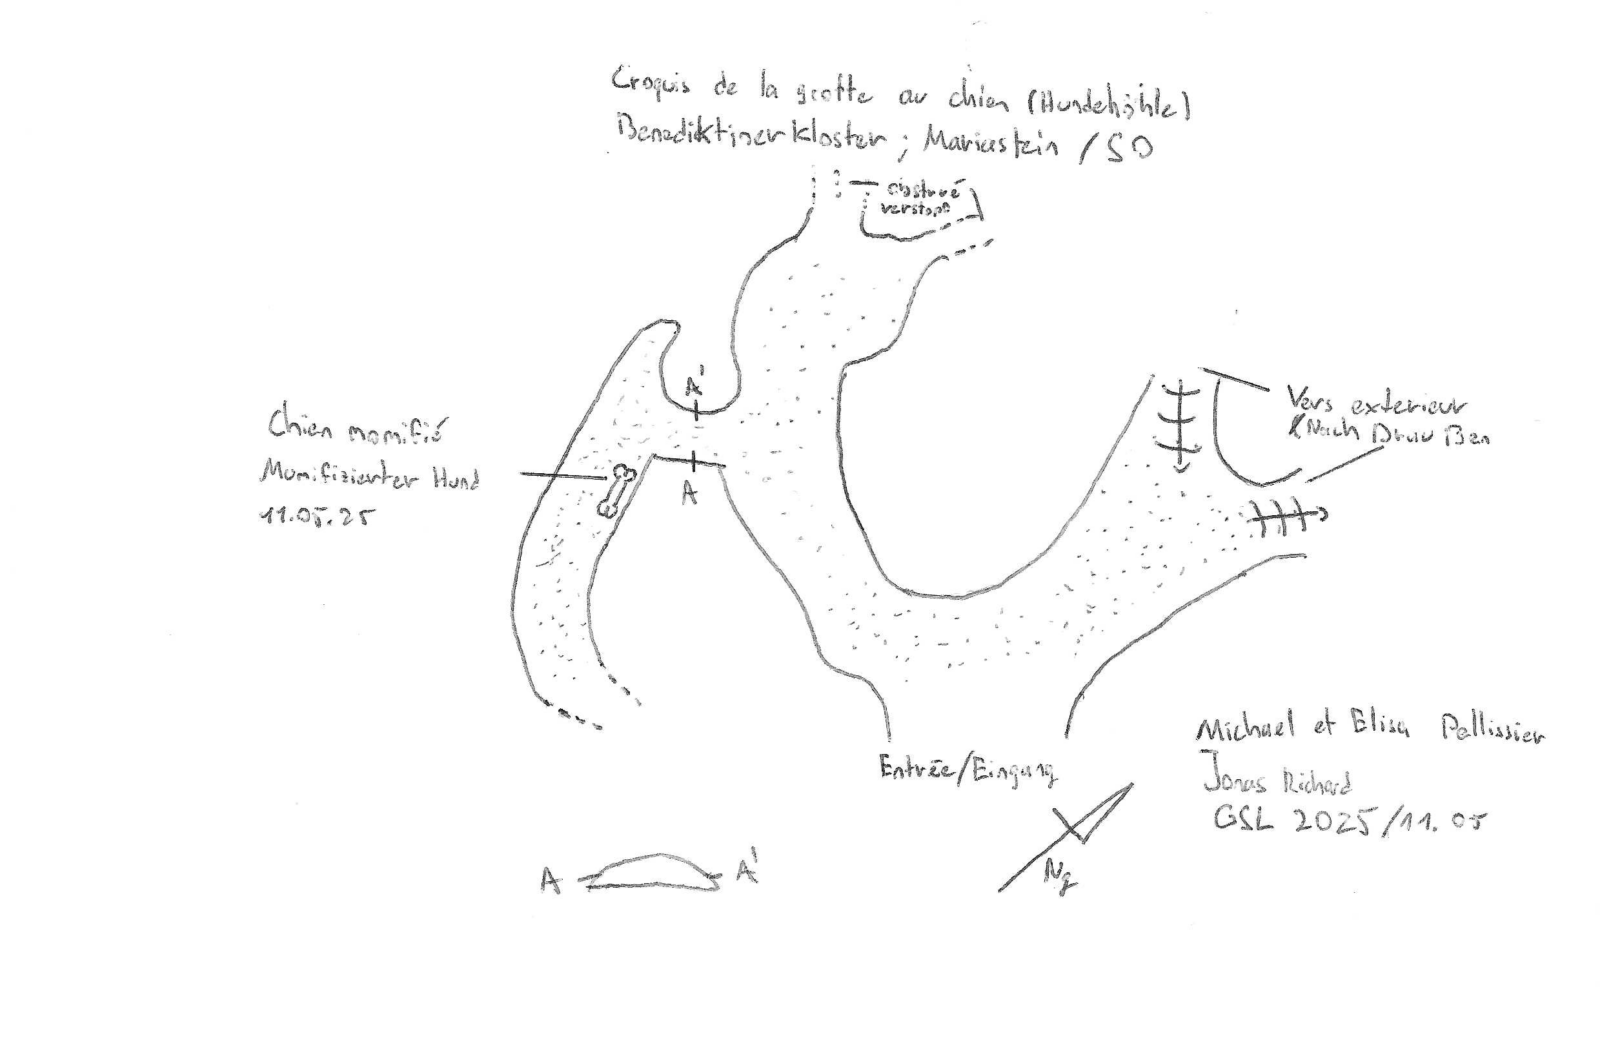 Croquis de la grotte au chien (Hundehöhle)
Benediktiner Kloster ; Mariastein / SO
obstrué
verstopft
A'
A
Chien momifié
Mumifizierter Hund
11.05.25
Vers exterieur
Nach Drau Ben
Entrée/Eingang
Michael et Elisa Pellissier
Jonas Richard
GSL 2025/11.05
Ng
A
A'